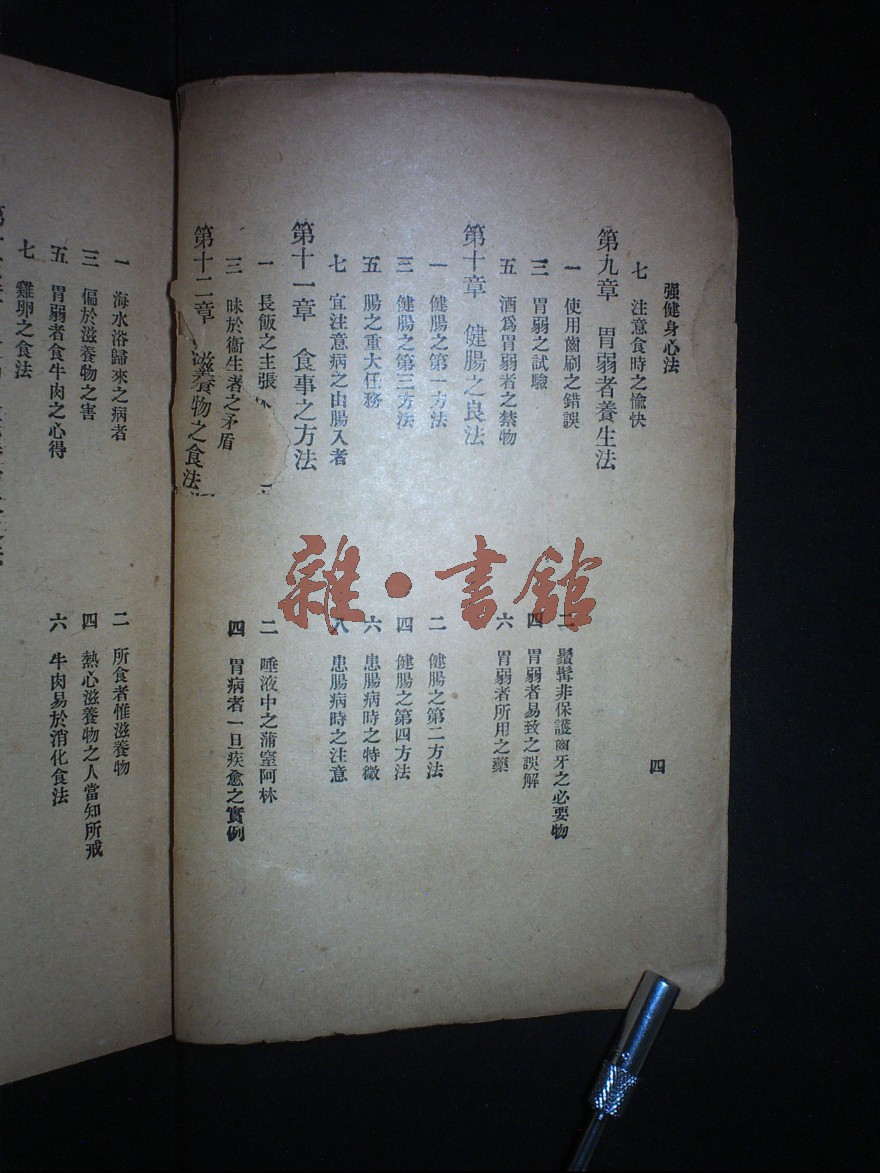 强健身心法
四
七　注意食時之愉快
第九章　胃弱者養生法
一　使用齒刷之錯誤
二　鬚髯非保護齒牙之必要物
三　胃弱之試驗
四　胃弱者易致之誤解
五　酒爲胃弱者之禁物
六　胃弱者所用之藥
第十章　健腸之良法
一　健腸之第一方法
二　健腸之第二方法
三　健腸之第三方法
四　健腸之第四方法
五　腸之重大任務
六　患腸病時之特徵
七　宜注意病之由腸入者
八　患腸病時之注意
第十一章　食事之方法
一　長飯之主張
二　唾液中之蒲窒阿林
三　昧於衞生者之矛盾
四　胃病者一旦疾愈之實例
第十二章　滋養物之食法
一　海水浴歸來之病者
二　所食者惟滋養物
三　偏於滋養物之害
四　熱心滋養物之人當知所戒
五　胃弱者食牛肉之心得
六　牛肉易於消化食法
七　雞卵之食法
雜·書館